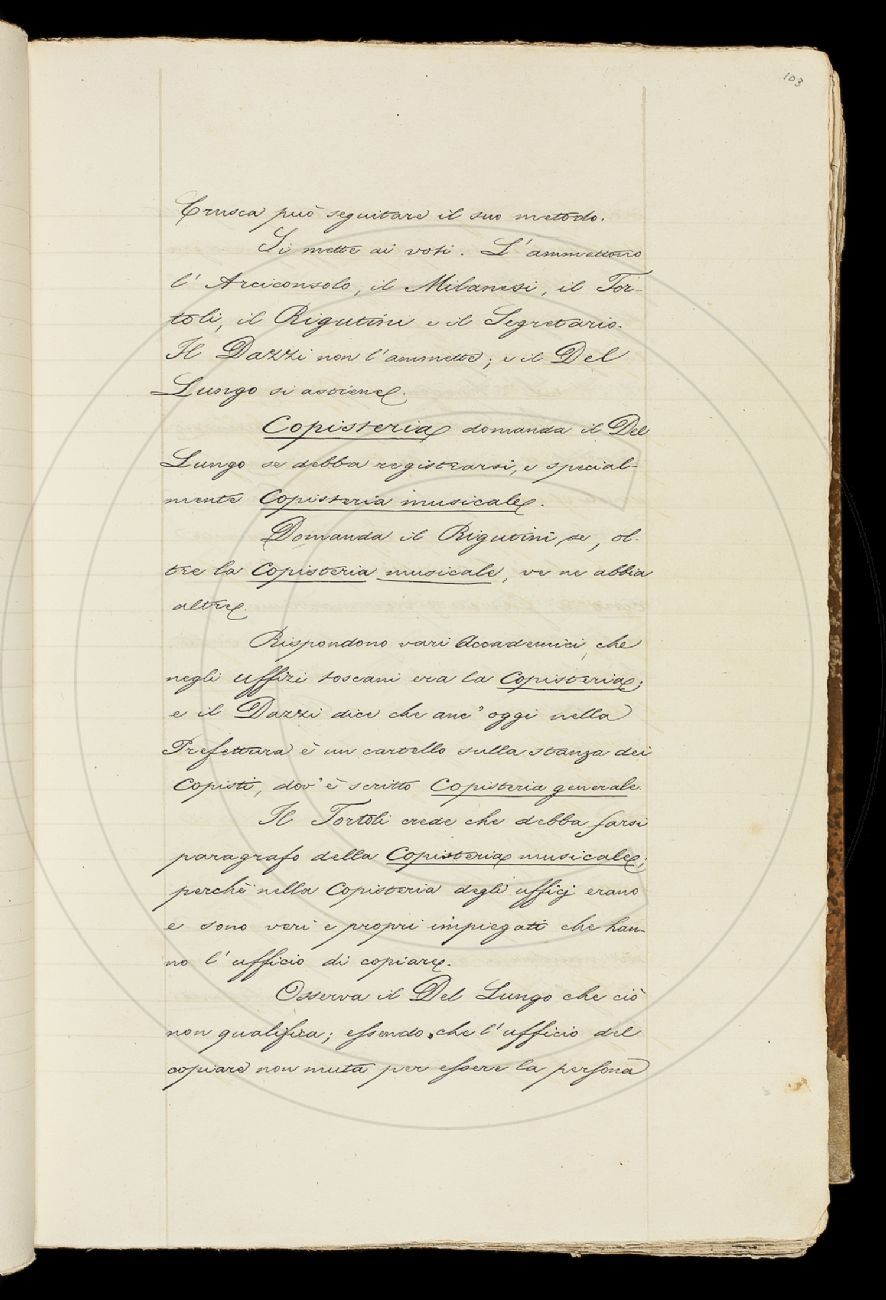 103
Crusca può seguitare il suo metodo.
Si mette ai voti. L'ammettono
l'Arciconsolo, il Milanesi, il Tor-
toli, il Rigutini e il Segretario.
Il Dazzi non l'ammette; e il Del
Lungo si astiene.
Copisteria domanda il Del
Lungo se debba registrarsi, e special-
mente Copisteria musicale.
Domanda il Rigutini, se, ol-
tre la Copisteria musicale, ve ne abbia
altre.
Rispondono vari Accademici, che
negli uffizi toscani era la Copisteria;
e il Dazzi dice che anc'oggi nella
Prefettura è un cartello sulla stanza dei
Copisti, dov'è scritto Copisteria generale.
Il Tortoli crede che debba farsi
paragrafo della Copisteria musicale;
perchè nella Copisteria degli ufficj erano
e sono veri e propri impiegati che han-
no l'ufficio di copiare.
Osserva il Del Lungo che ciò
non qualifica; essendo che l'ufficio del
copiare non muta per essere la persona